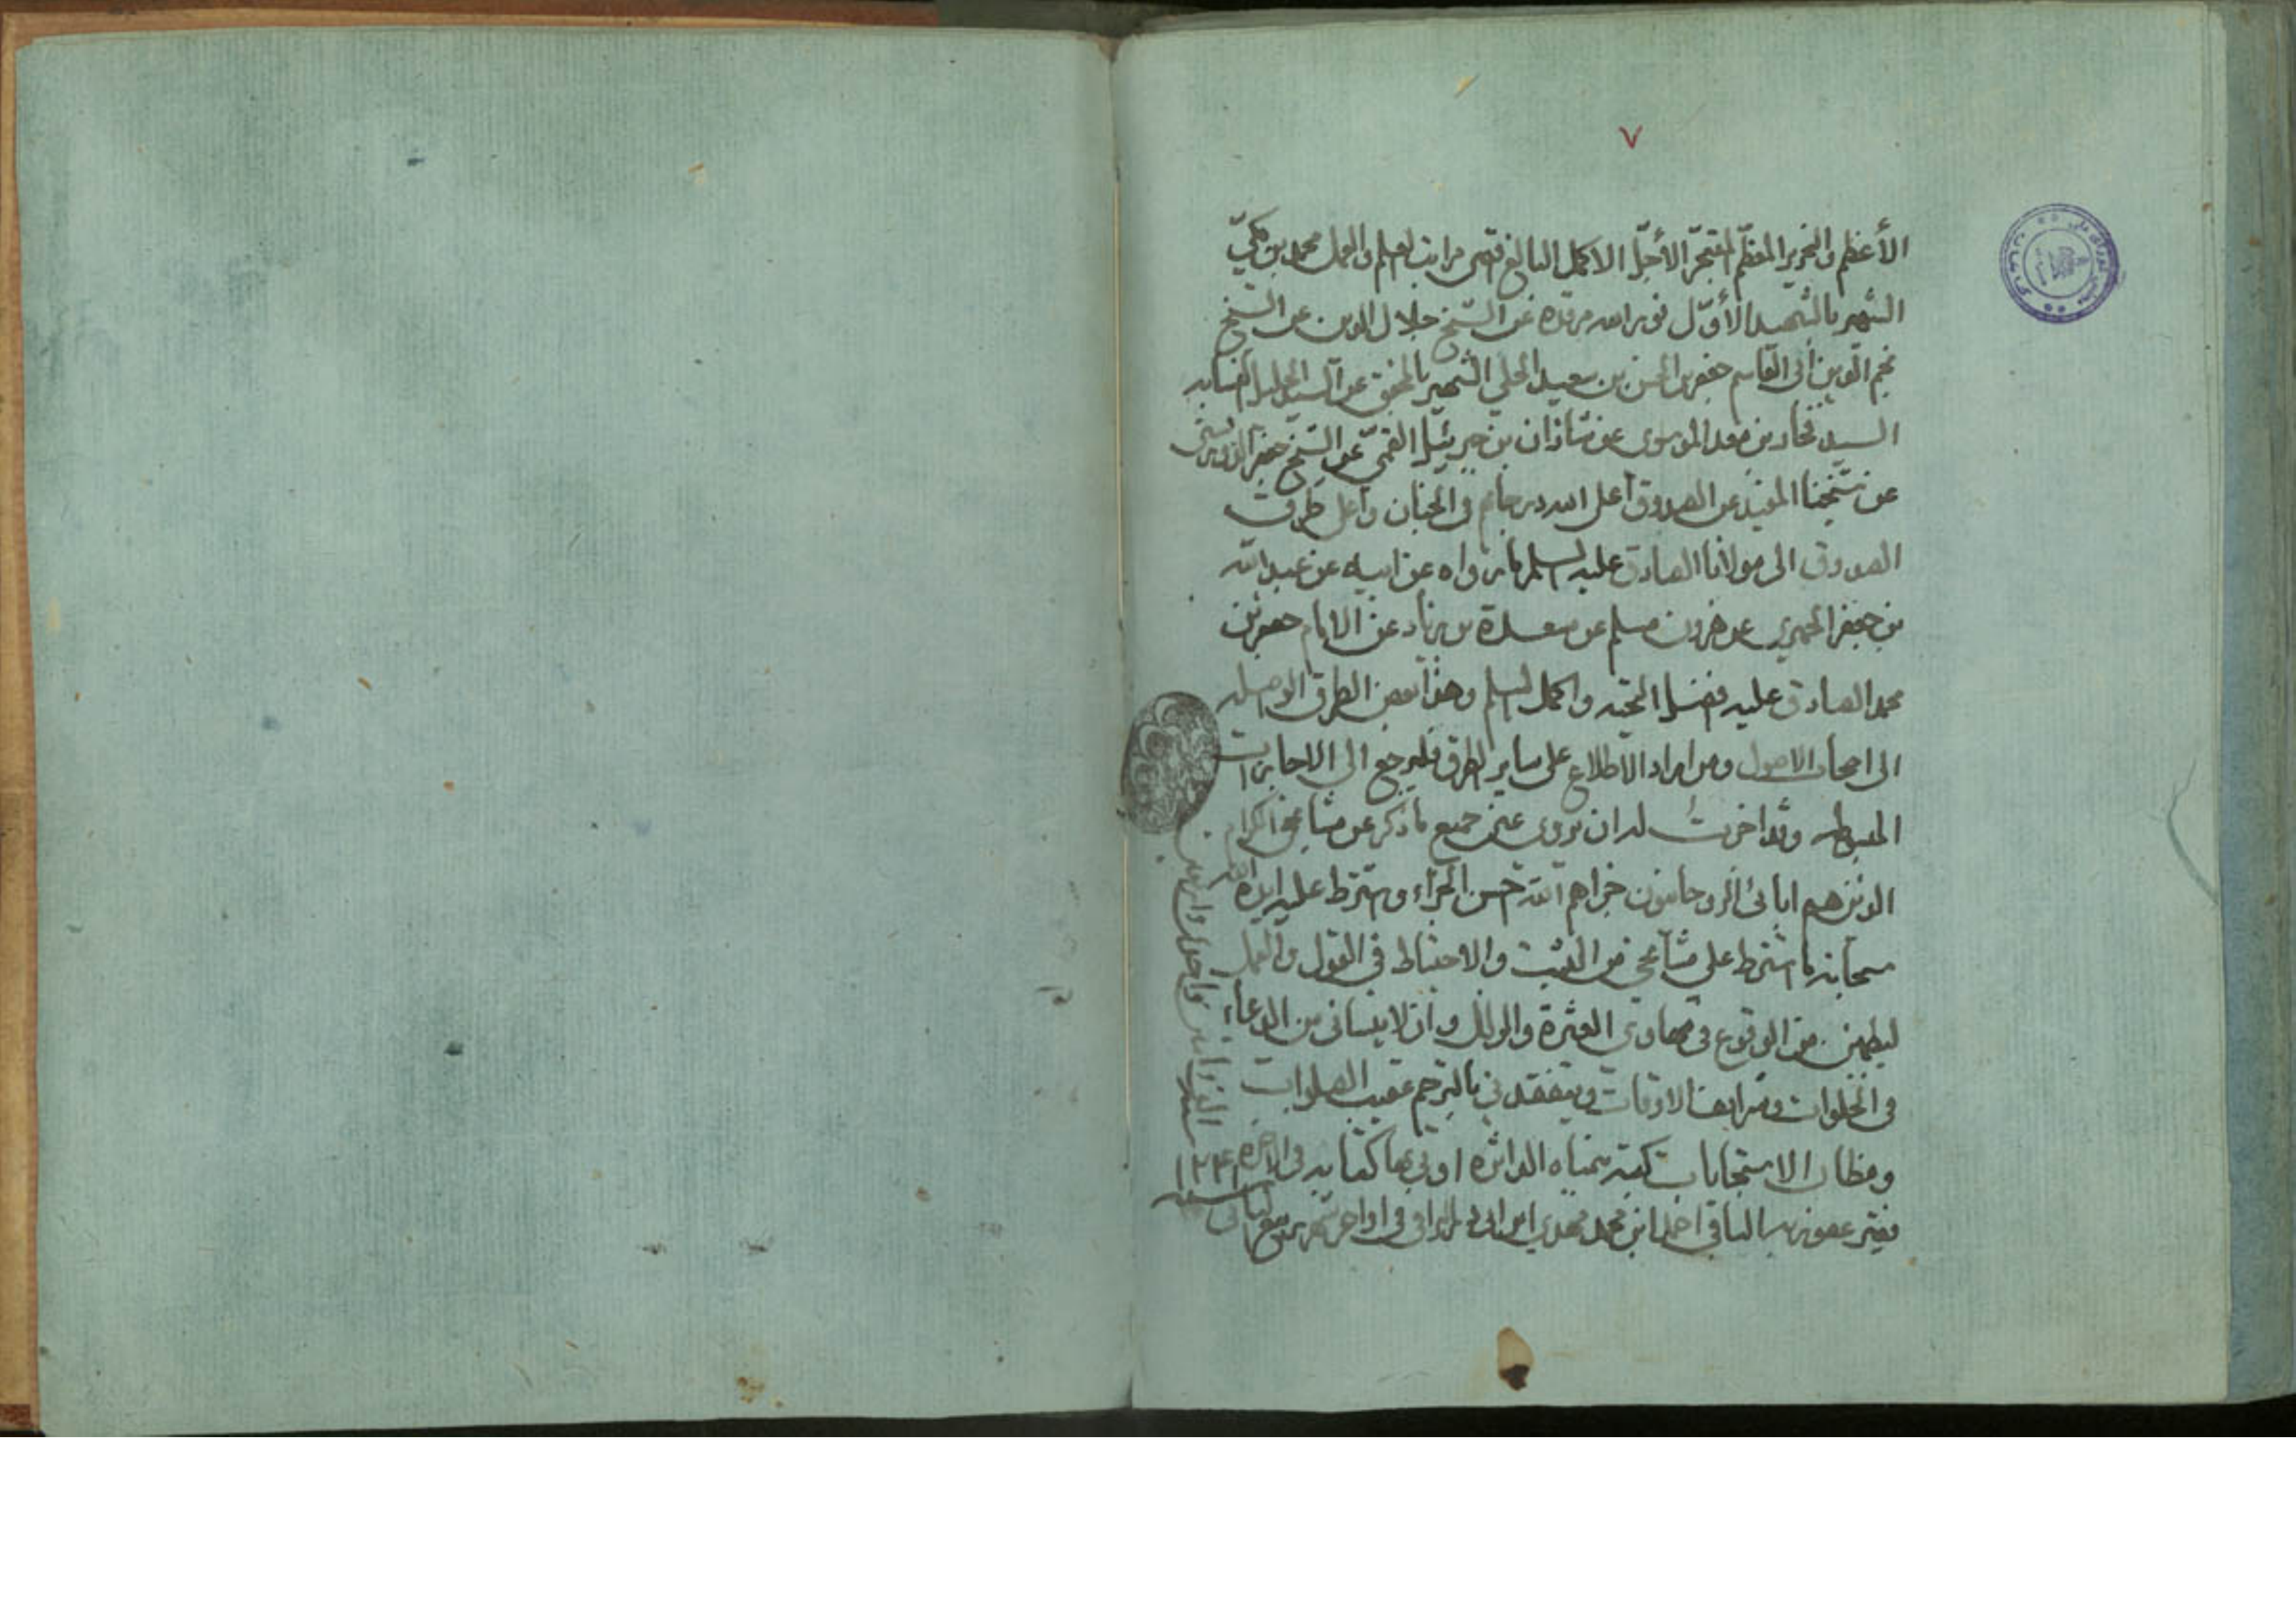 ٧
الأعظم والنحرير المعظّم المتبحّر الأجلّ الاكمل البالغ اقصى مراتب العلم والعمل محمد بن مكيّ
الشهير بالشّهيد الأوّل نور الله مرقده عن الشّيخ جلال الدين عن الشيخ
نجم الدّين أبى القاسم جعفر بن الحسن بن سعيد الحلي الشّهير بالمحقق عن السيد الجليل النسابه
السيد فخار بن معد الموسوى عن شاذان بن جبرئيل القمّي عن الشّيخ جعفر الدوريستى
عن شيخنا المفيد عن الصدوق أعلى الله درجاتهم فى الجنان وأعلى طرق
الصدوق الى مولانا الصادق عليه السلم ما رواه عن ابيه عن عبد الله
بن جعفر الحميري عن هرون بن مسلم عن مسعدة بن زياد عن الامام جعفر بن
محمد الصادق عليه افضل التحيه واكمل السلم وهذا بعض الطرق الواصله
الى اصحاب الاصول ومن اراد الاطلاع على ساير الطرق فليرجع الى الاجازات
المبسوطه وقد اجزت له ان يروى عنى جميع ما ذكر عن مشايخى الكرام
الذين هم ابائى الروحانيون جزاهم الله احسن الجزاء واشترط عليه ايده الله
سبحانه ما اشترط على مشايخي من التثبت والاحتياط فى القول والعمل
ليطمئن من الوقوع فى مهاوي العثرة والزلل وان لا ينسانى من الدعاء
فى الخلوات وشرايف الاوقات ويتفقدنى بالترحم عقيب الصلوات
ومظان الاستجابات كتبه بيمناه الداثره اوتى بها كتابه فى الاخرة
فقير عفو ربه الباقى احمد ابن محمد مهدي ابن ابى ذر النراقى فى اواخر شهر ربيع الثانى
سنه ١٢٢٤